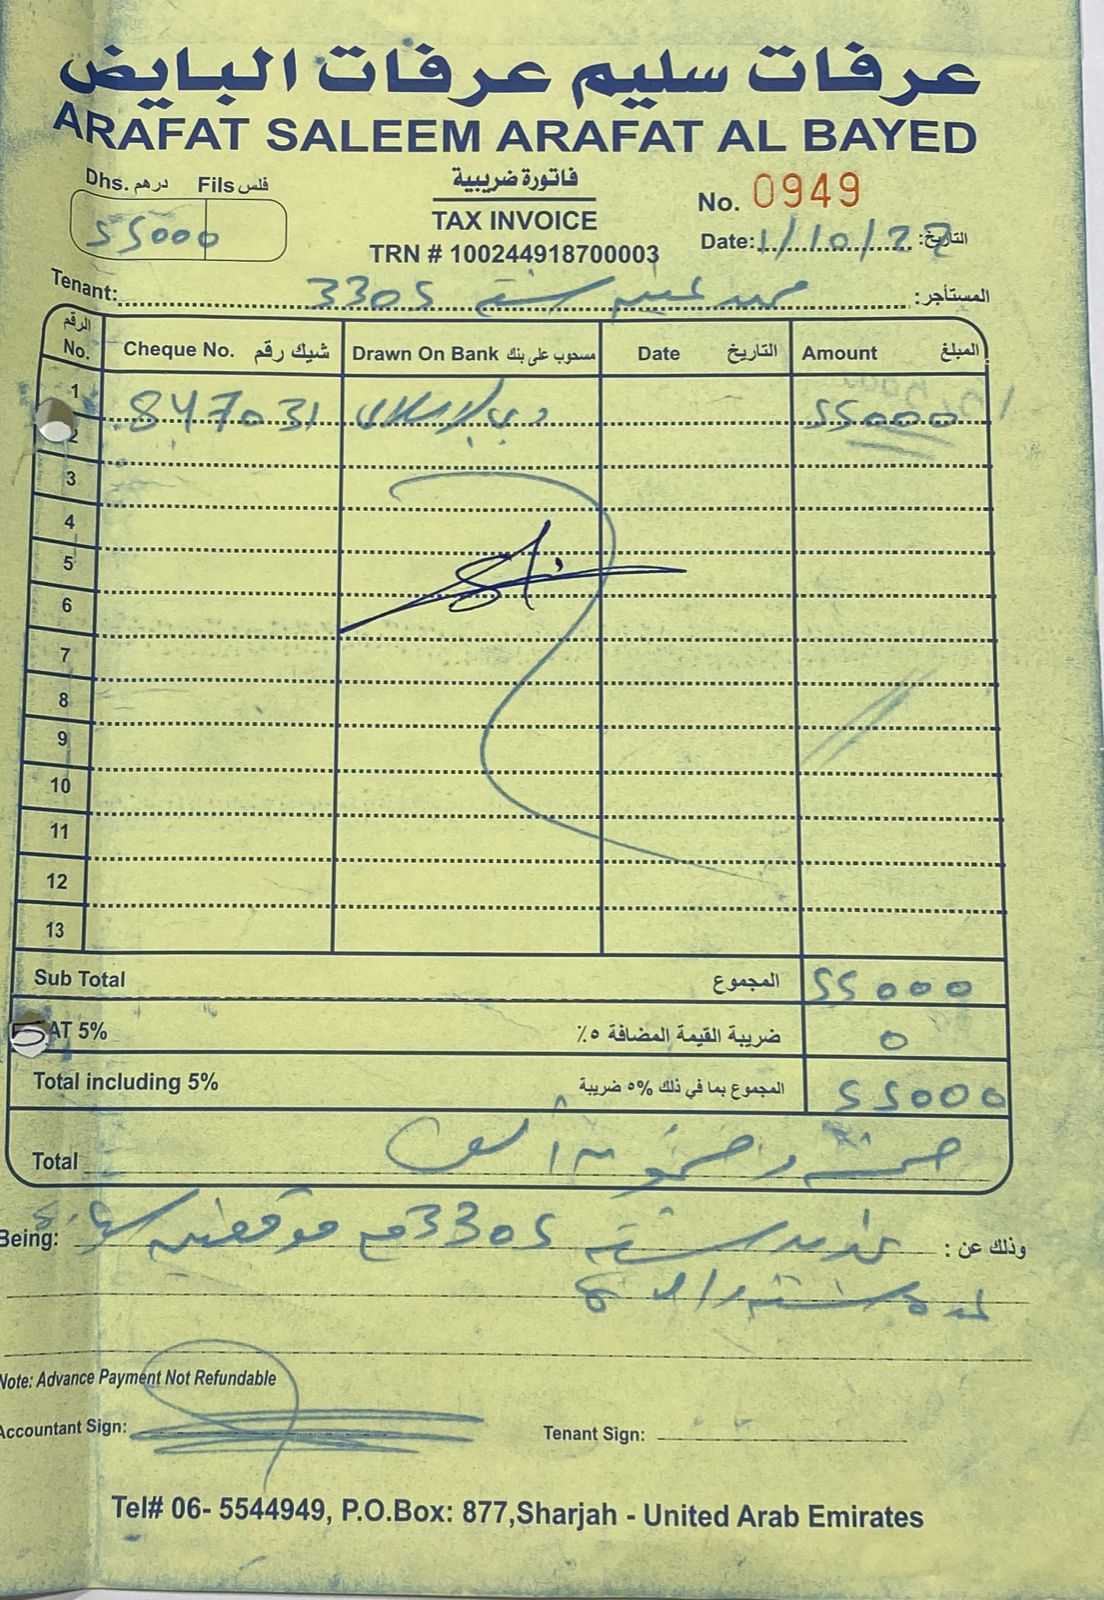 عرفات سليم عرفات البايض
ARAFAT SALEEM ARAFAT AL BAYED
Dhs. درهم Fils فلس
55000
فاتورة ضريبية
TAX INVOICE
TRN # 100244918700003
No. 0949
Date: 1/10/22 التاريخ:
Tenant: محمد شقة 3305 المستأجر:
الرقم No. Cheque No. شيك رقم Drawn On Bank مسحوب على بنك Date التاريخ Amount المبلغ
1 847031 دبي الاسلامي 55000
2
3
4
5
6
7
8
9
10
11
12
13
Sub Total المجموع 55000
VAT 5% ضريبة القيمة المضافة ٥٪ 0
Total including 5% المجموع بما في ذلك ٥% ضريبة 55000
Total خمسة وخمسون ألف
Being: شقة 3305 مع موقفين وذلك عن :
لمدة سنة واحدة
Note: Advance Payment Not Refundable
Accountant Sign: Tenant Sign:
Tel# 06- 5544949, P.O.Box: 877,Sharjah - United Arab Emirates